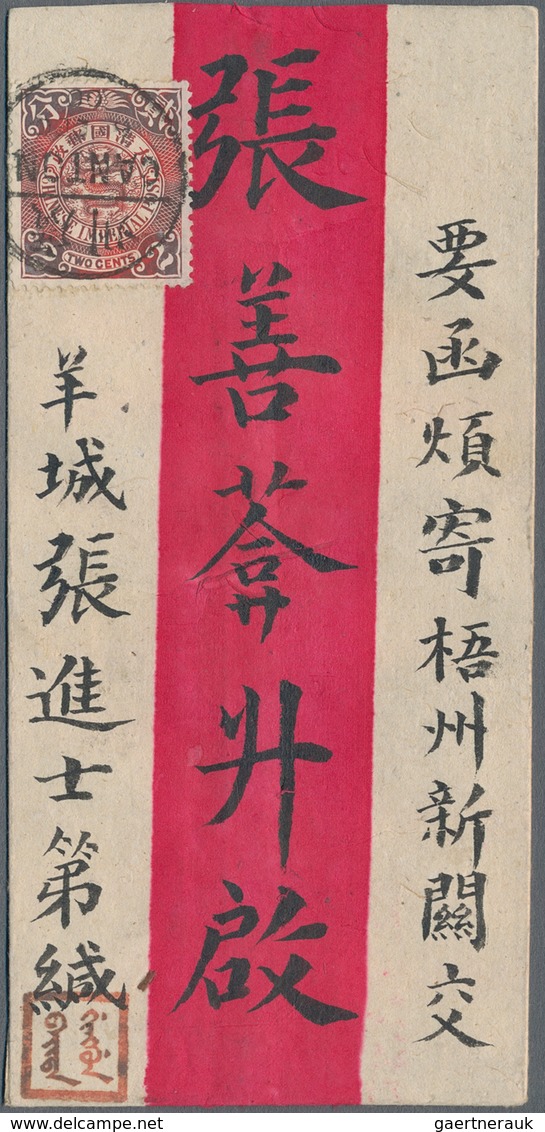 要函煩寄梧州新關交
張善葊升啟
羊城張進士第緘
大清國郵政
CHINESE IMPERIAL POST
TWO CENTS
2
CANTON
gaertnerauk